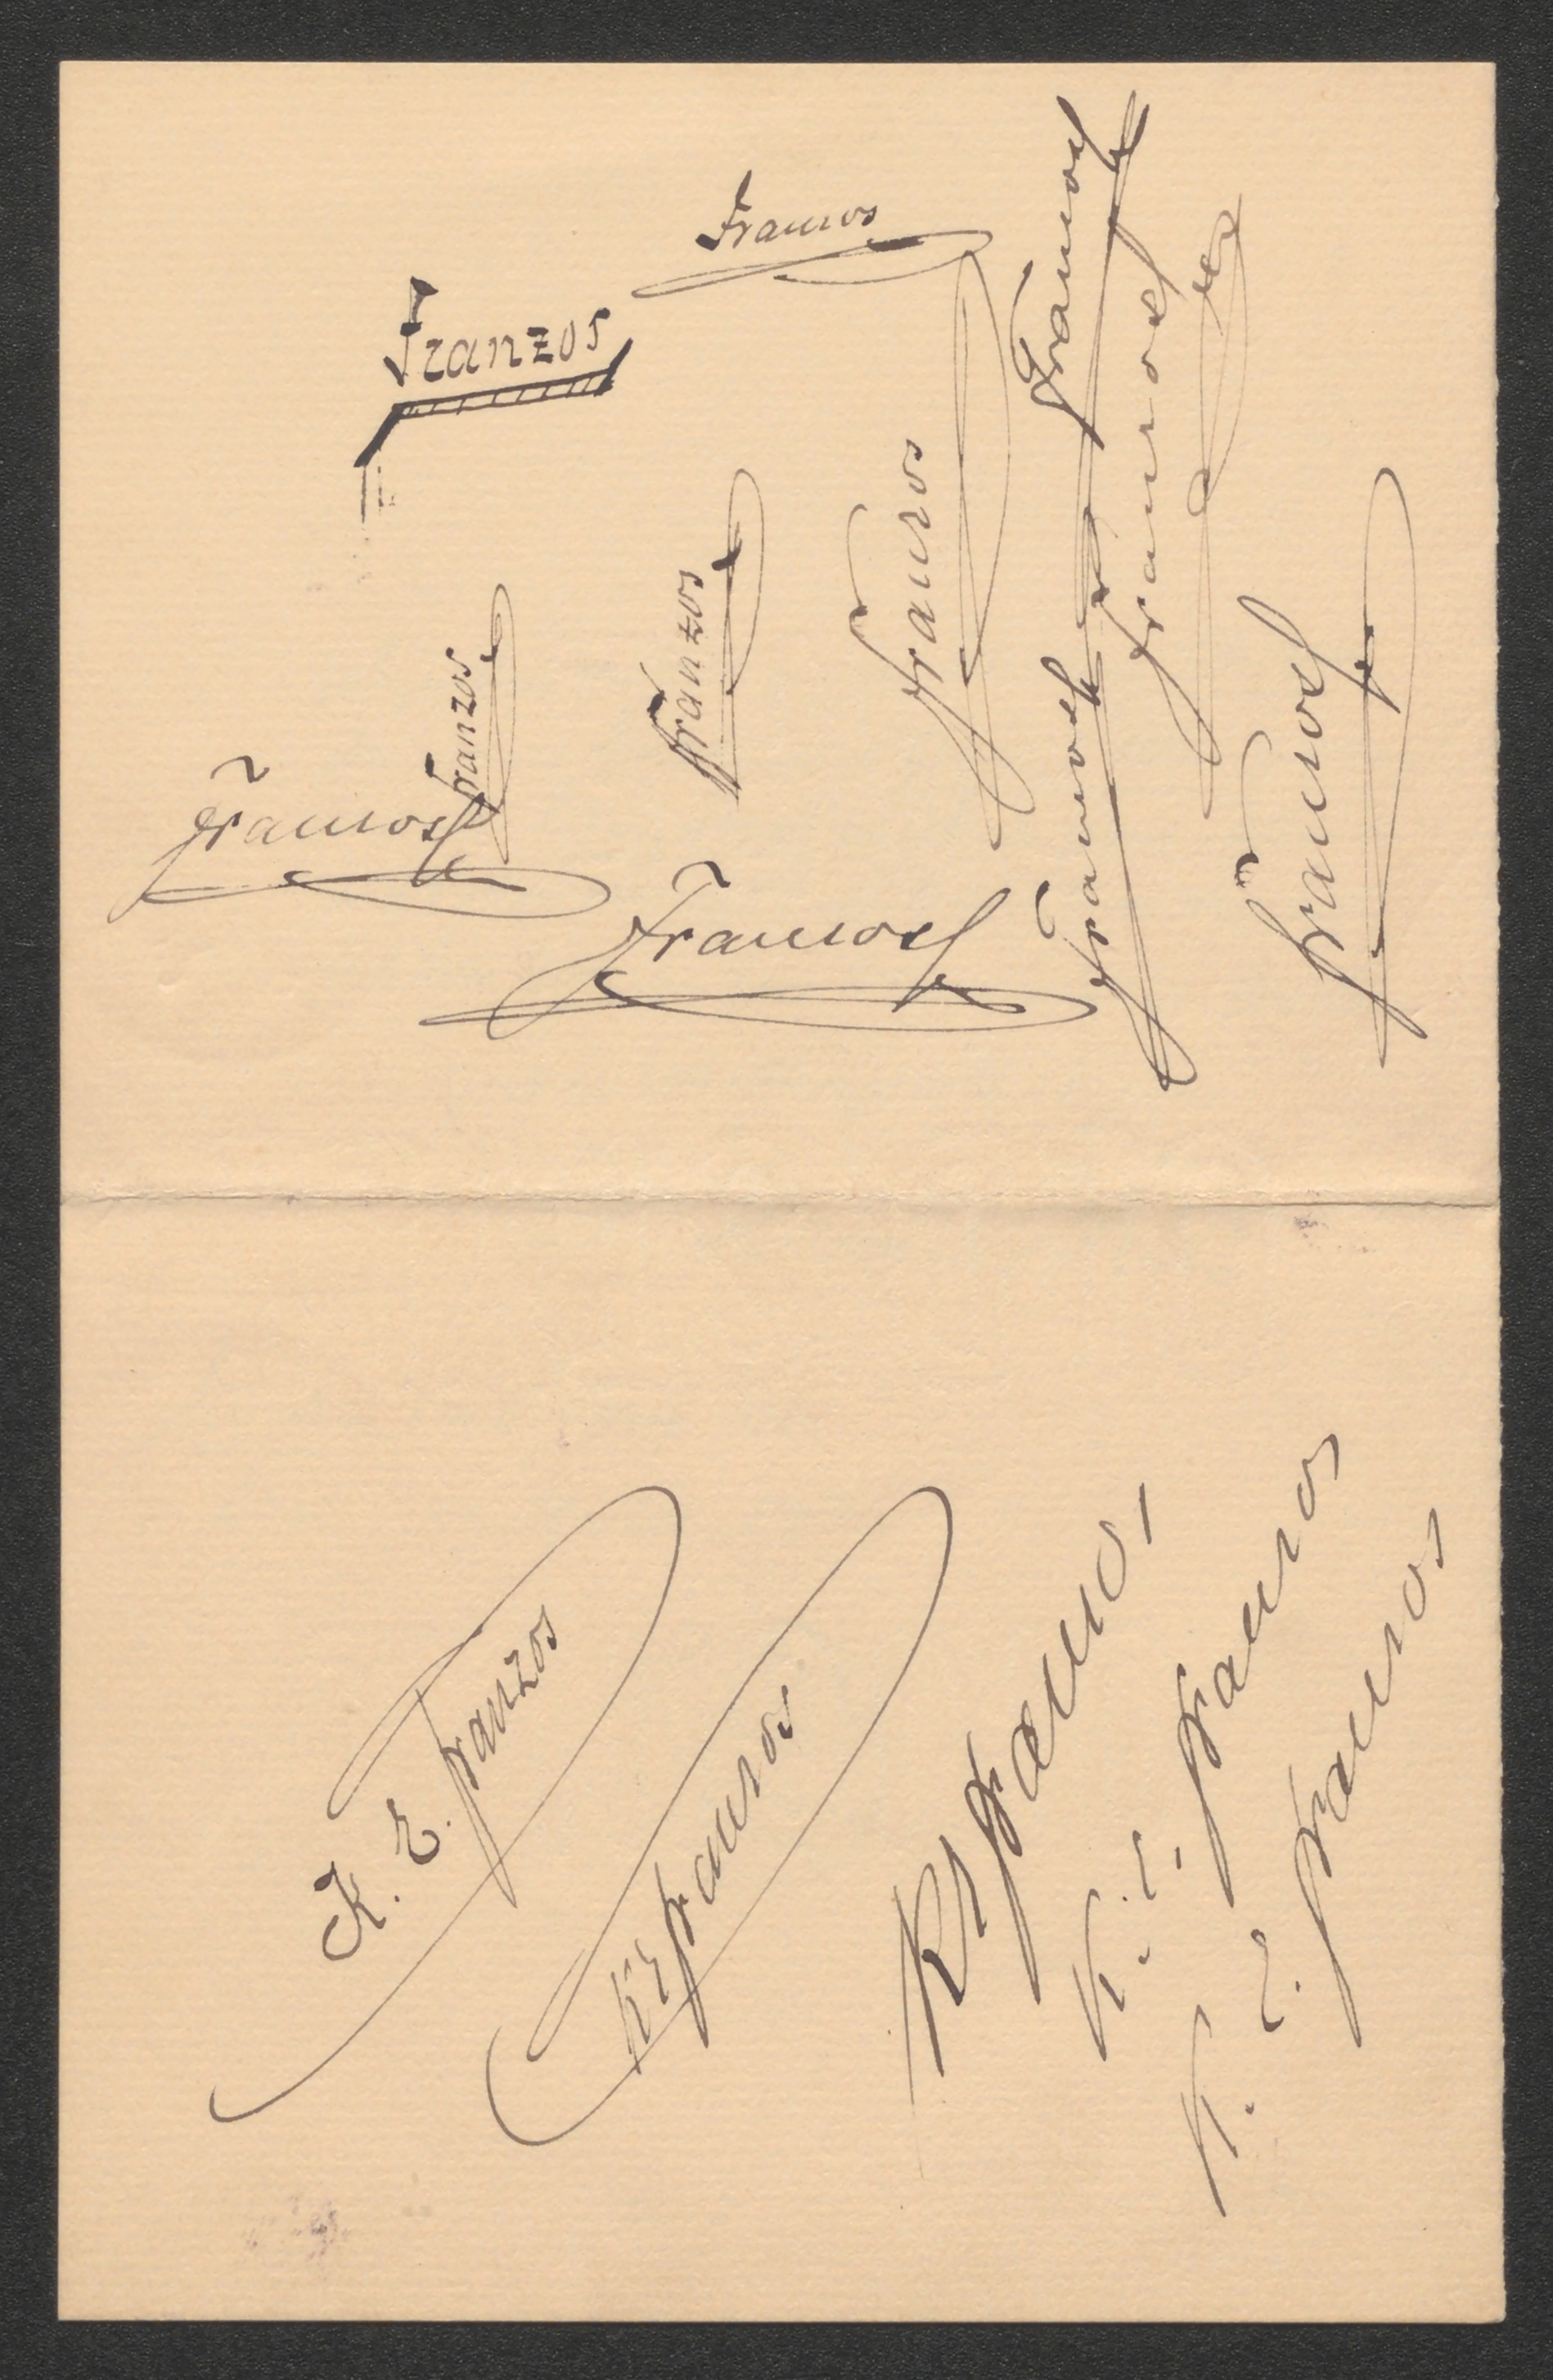 Franzos
Franzos
Franzos
Franzos
Franzos
Franzos
Franzos
Franzos
Franzos
Franzos
Franzos
K. E. Franzos
KEFranzos
KEFranzos
K. E. Franzos
K. E. Franzos